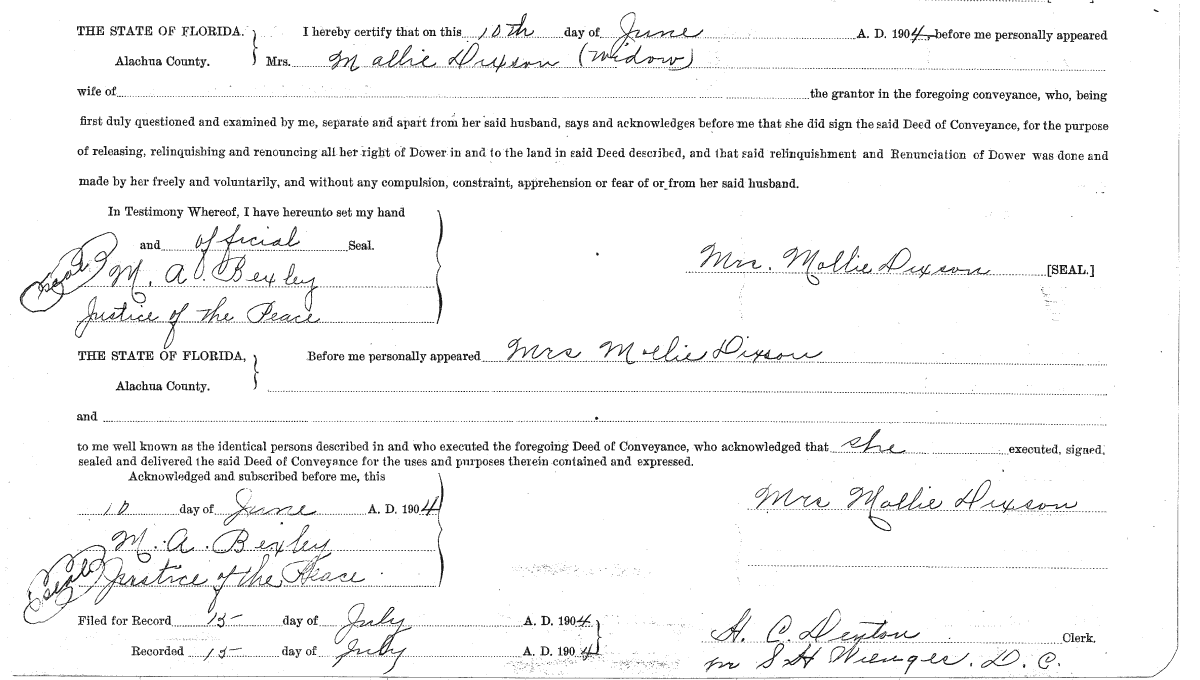 THE STATE OF FLORIDA. } I hereby certify that on this 10th day of June A. D. 1904, before me personally appeared
Alachua County. Mrs. Mollie Dixson (Widow)
wife of the grantor in the foregoing conveyance, who, being
first duly questioned and examined by me, separate and apart from her said husband, says and acknowledges before me that she did sign the said Deed of Conveyance, for the purpose
of releasing, relinquishing and renouncing all her right of Dower in and to the land in said Deed described, and that said relinquishment and Renunciation of Dower was done and
made by her freely and voluntarily, and without any compulsion, constraint, apprehension or fear of or from her said husband.
In Testimony Whereof, I have hereunto set my hand
and official Seal.
Seal M. A. Bexley Mrs. Mollie Dixson [SEAL.]
Justice of the Peace
THE STATE OF FLORIDA, } Before me personally appeared Mrs Mollie Dixson
Alachua County.
and
to me well known as the identical persons described in and who executed the foregoing Deed of Conveyance, who acknowledged that she executed, signed,
sealed and delivered the said Deed of Conveyance for the uses and purposes therein contained and expressed.
Acknowledged and subscribed before me, this
10 day of June A. D. 1904 Mrs Mollie Dixson
M. A. Bexley
Seal Justice of the Peace.
Filed for Record 15 day of July A. D. 1904 H. C. Denton Clerk.
Recorded 15 day of July A. D. 1904 S H Wienges. D. C.